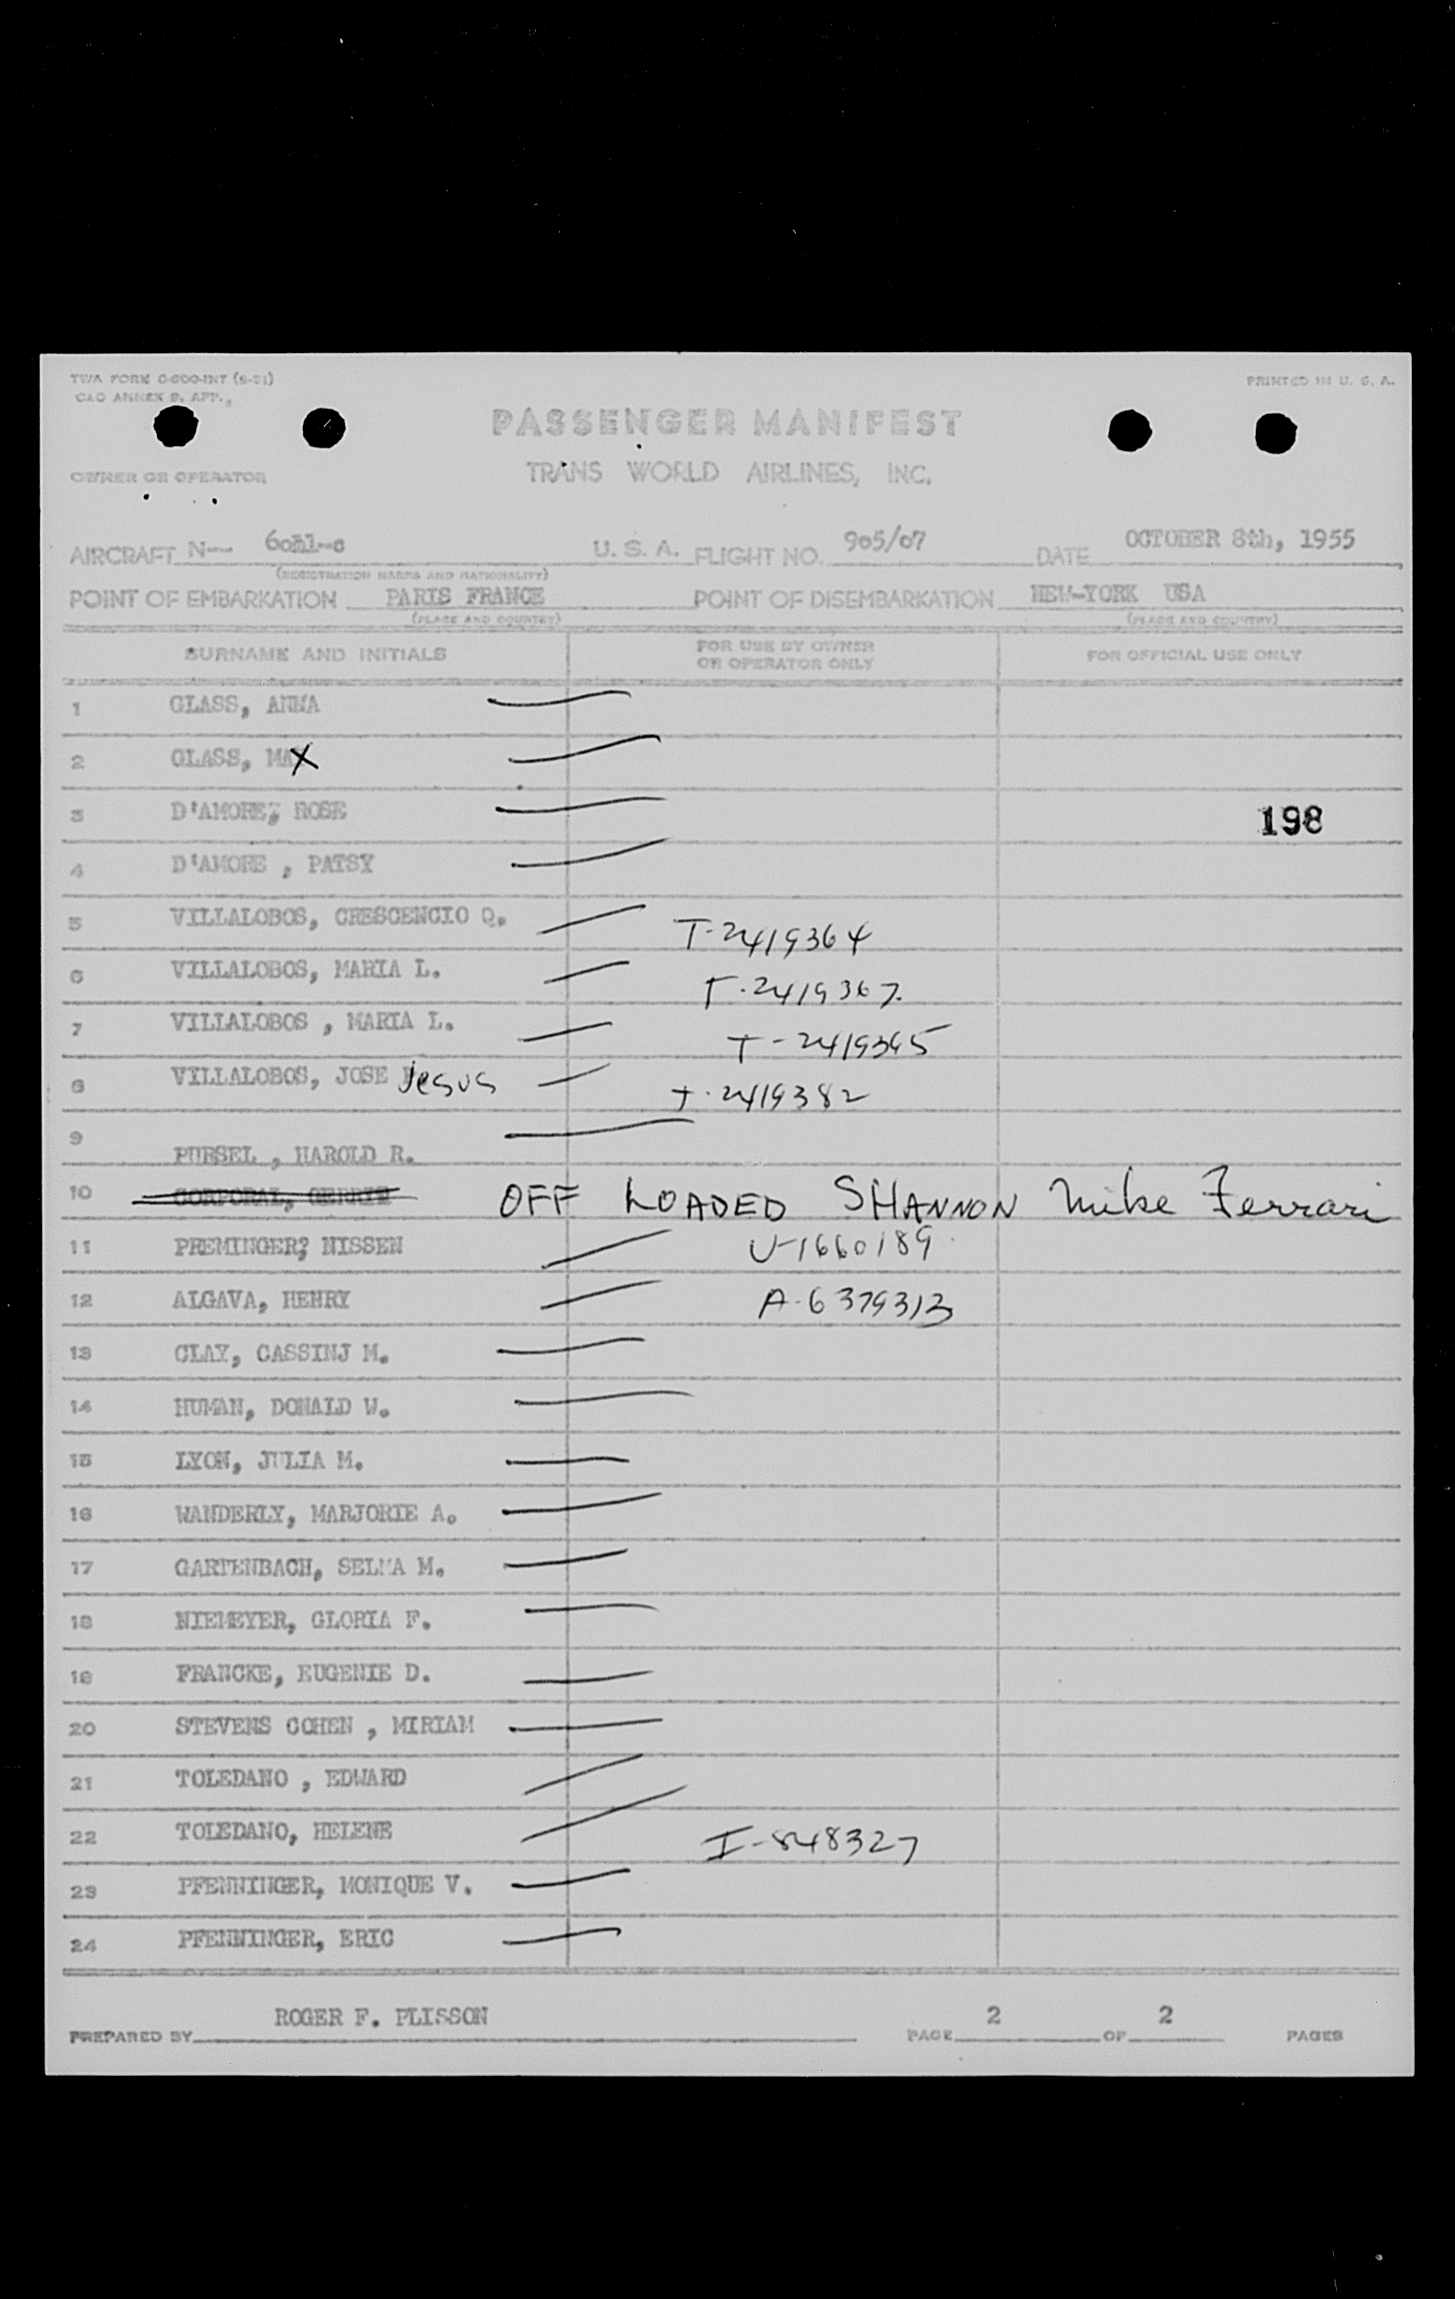 TWA FORM
PRINTED IN U. S. A.
PASSENGER MANIFEST
OWNER OR OPERATOR
TRANS WORLD AIRLINES, INC.
AIRCRAFT N-- U. S. A. FLIGHT NO. 905/07 DATE OCTOBER 8th, 1955
(REGISTRATION MARKS AND NATIONALITY)
POINT OF EMBARKATION PARIS FRANCE POINT OF DISEMBARKATION NEW-YORK USA
(PLACE AND COUNTRY) (PLACE AND COUNTRY)
SURNAME AND INITIALS FOR USE BY OWNER OR OPERATOR ONLY FOR OFFICIAL USE ONLY
1 GLASS, ANNA
2 GLASS, MAX
3 D'AMORE, ROSE 198
4 D'AMORE , PATSY
5 VILLALOBOS, CRESCENCIO Q. T-2419364
6 VILLALOBOS, MARIA L. T-2419367
7 VILLALOBOS , MARIA L.
8 VILLALOBOS, JOSE Jesus T-2419382
9 PURSEL , HAROLD R.
10 CORPORAL, OFF LOADED SHANNON Mike Ferrari
11 PREMINGER? NISSEN U-1660189
12 ALGAVA, HENRY A-6379313
13 CLAY, CASSINJ M.
14 HUMAN, DONALD W.
15 LYON, JULIA M.
16 WANDERLY, MARJORIE A.
17 GARTENBACH, SELMA M.
18 NIEMEYER, GLORIA F.
19 FRANCKE, EUGENIE D.
20 STEVENS COHEN , MIRIAM
21 TOLEDANO , EDWARD
22 TOLEDANO, HELENE I-848327
23 PFENNINGER, MONIQUE V.
24 PFENNINGER, ERIC
PREPARED BY ROGER F. PLISSON PAGE 2 OF 2 PAGES